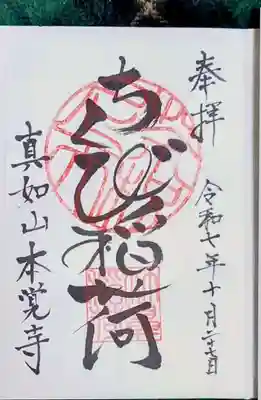 奉拝 令和七年十月
ちくび稲荷
真如山本覚寺